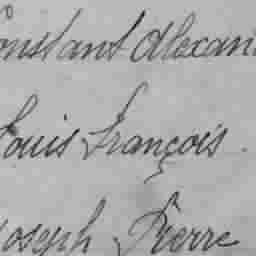 Constant Alexan
Louis François
Joseph Pierre